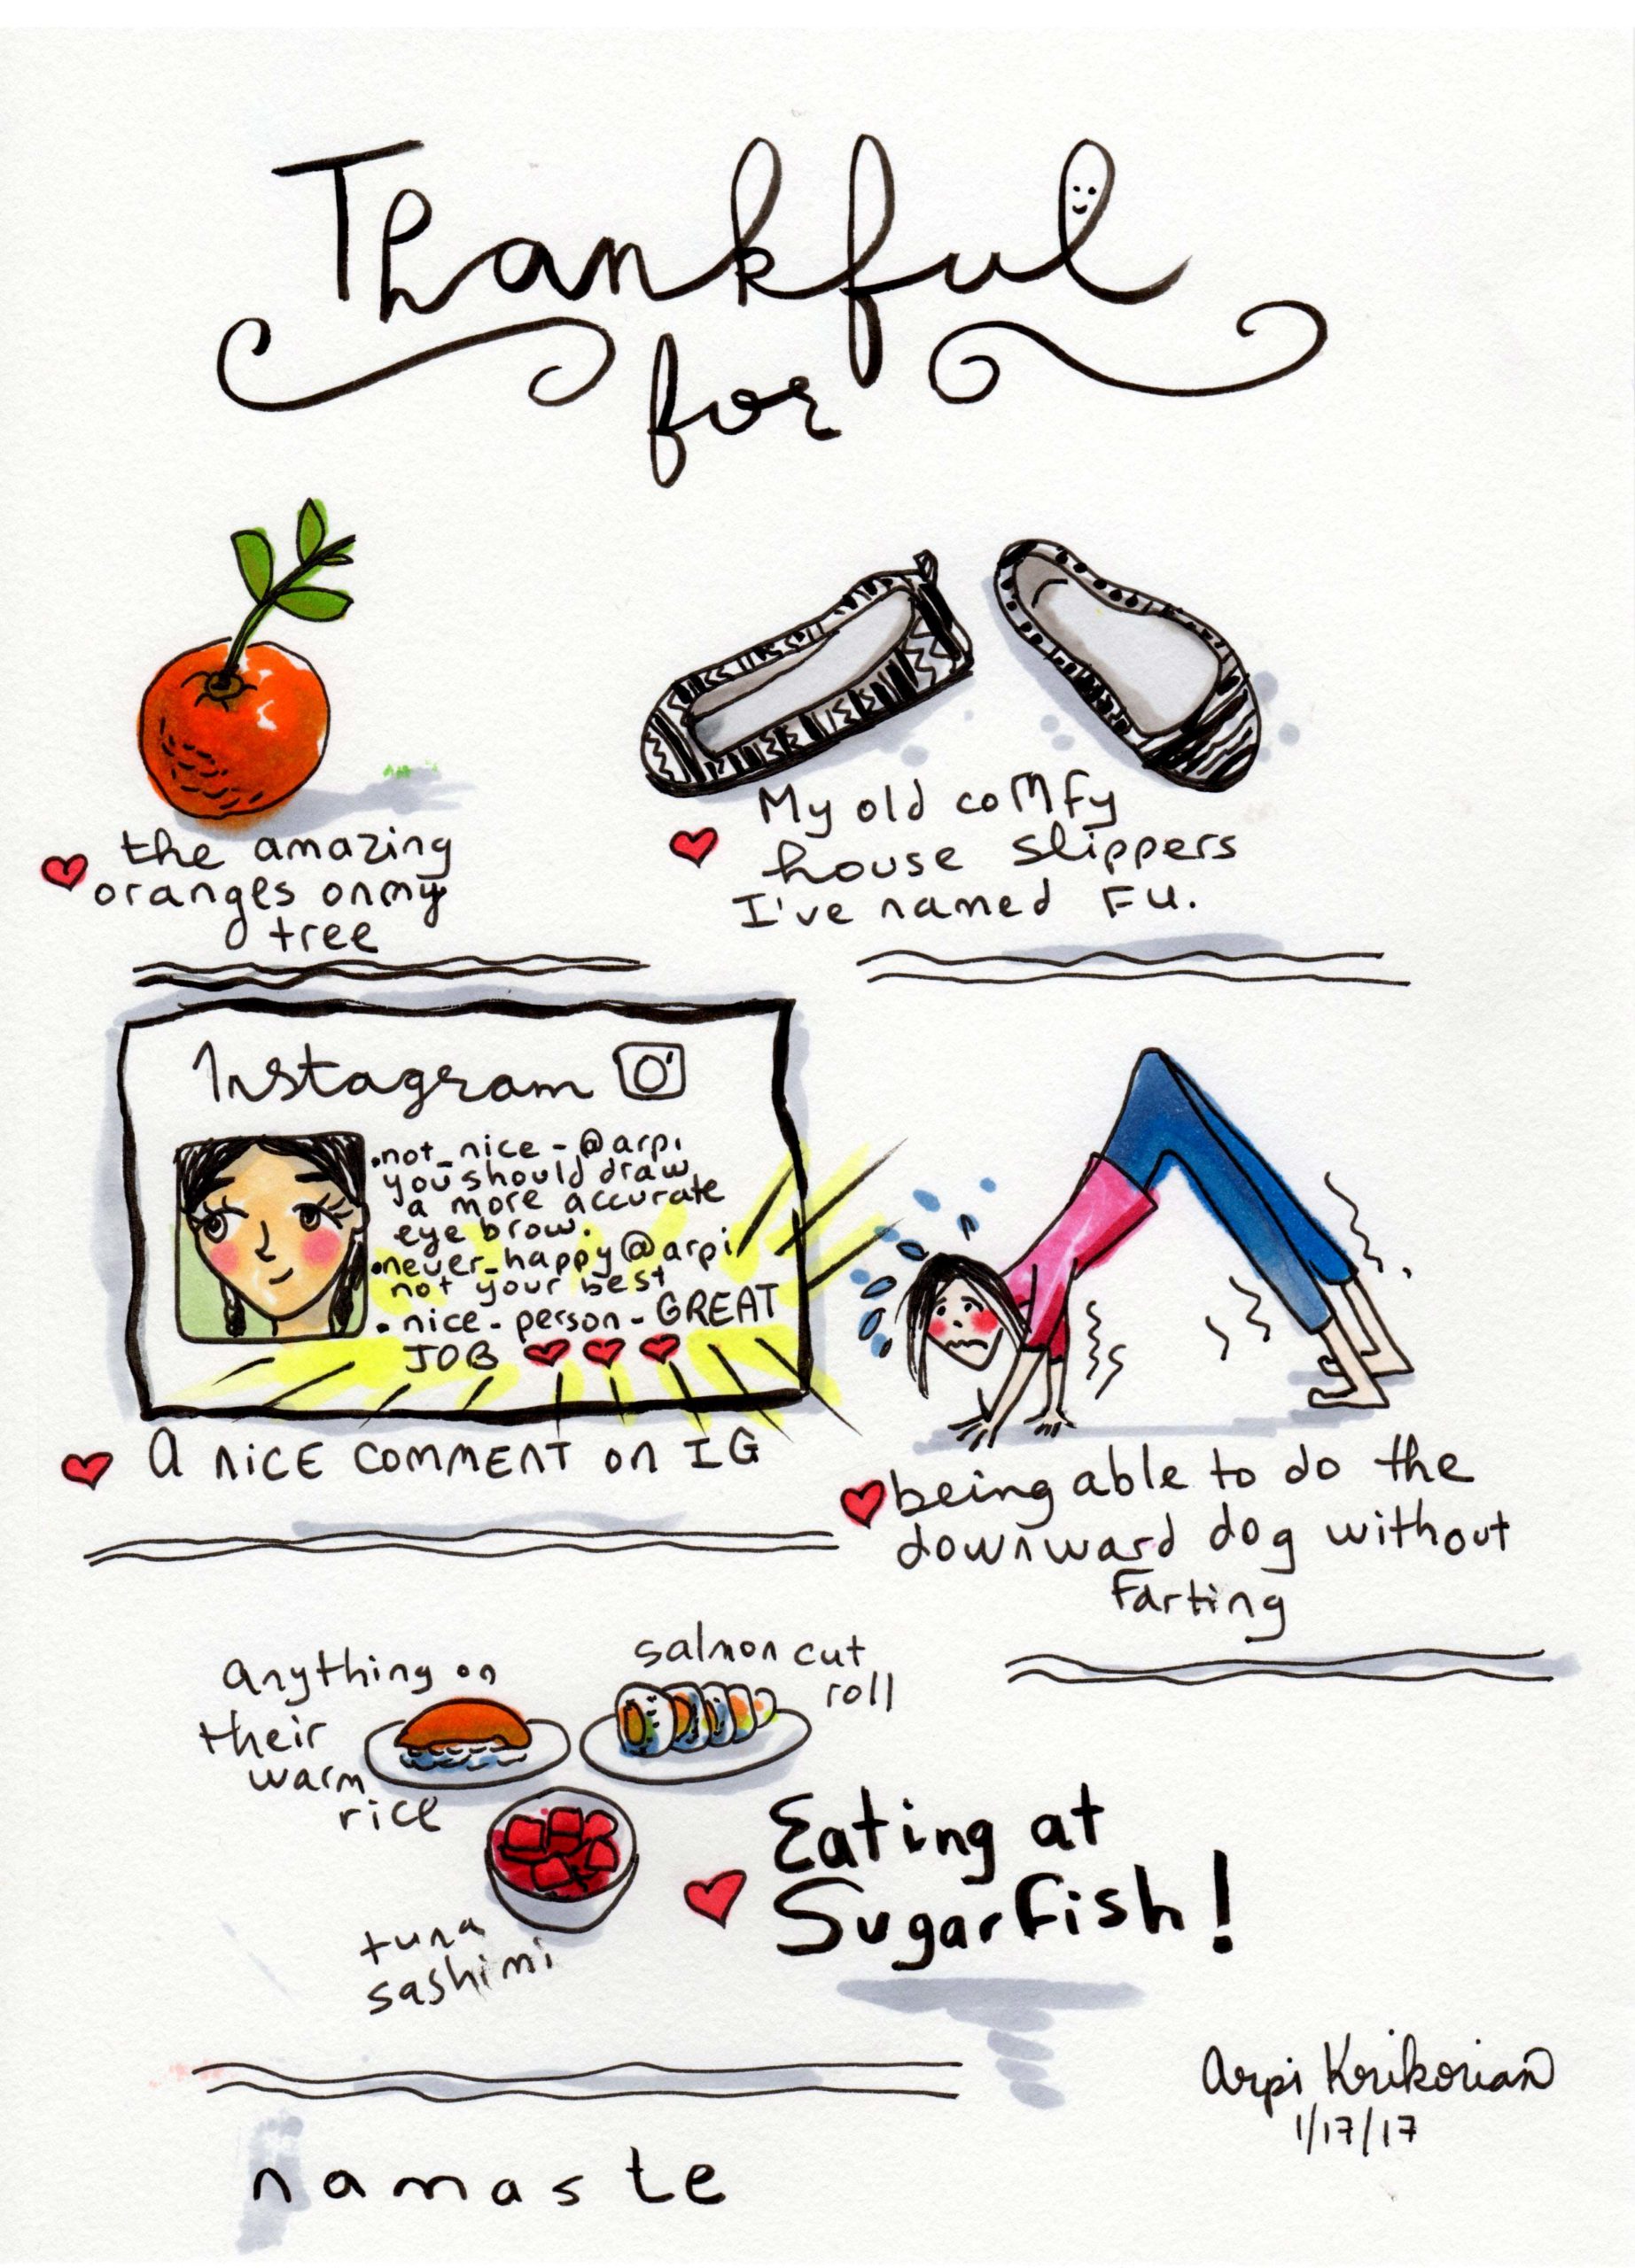 Thankful
for
the amazing
oranges on my
tree
My old comfy
house slippers
I've named FU.
Instagram
.not_nice - @arpi
you should draw
a more accurate
eye brow.
.never_happy@arpi
not your best
. nice - person - GREAT
JOB
A NICE COMMENT ON IG
being able to do the
downward dog without
Farting
anything on
their
warm
rice
salmon cut
roll
tuna
sashimi
Eating at
Sugarfish!
Arpi Krikorian
1/17/17
namaste